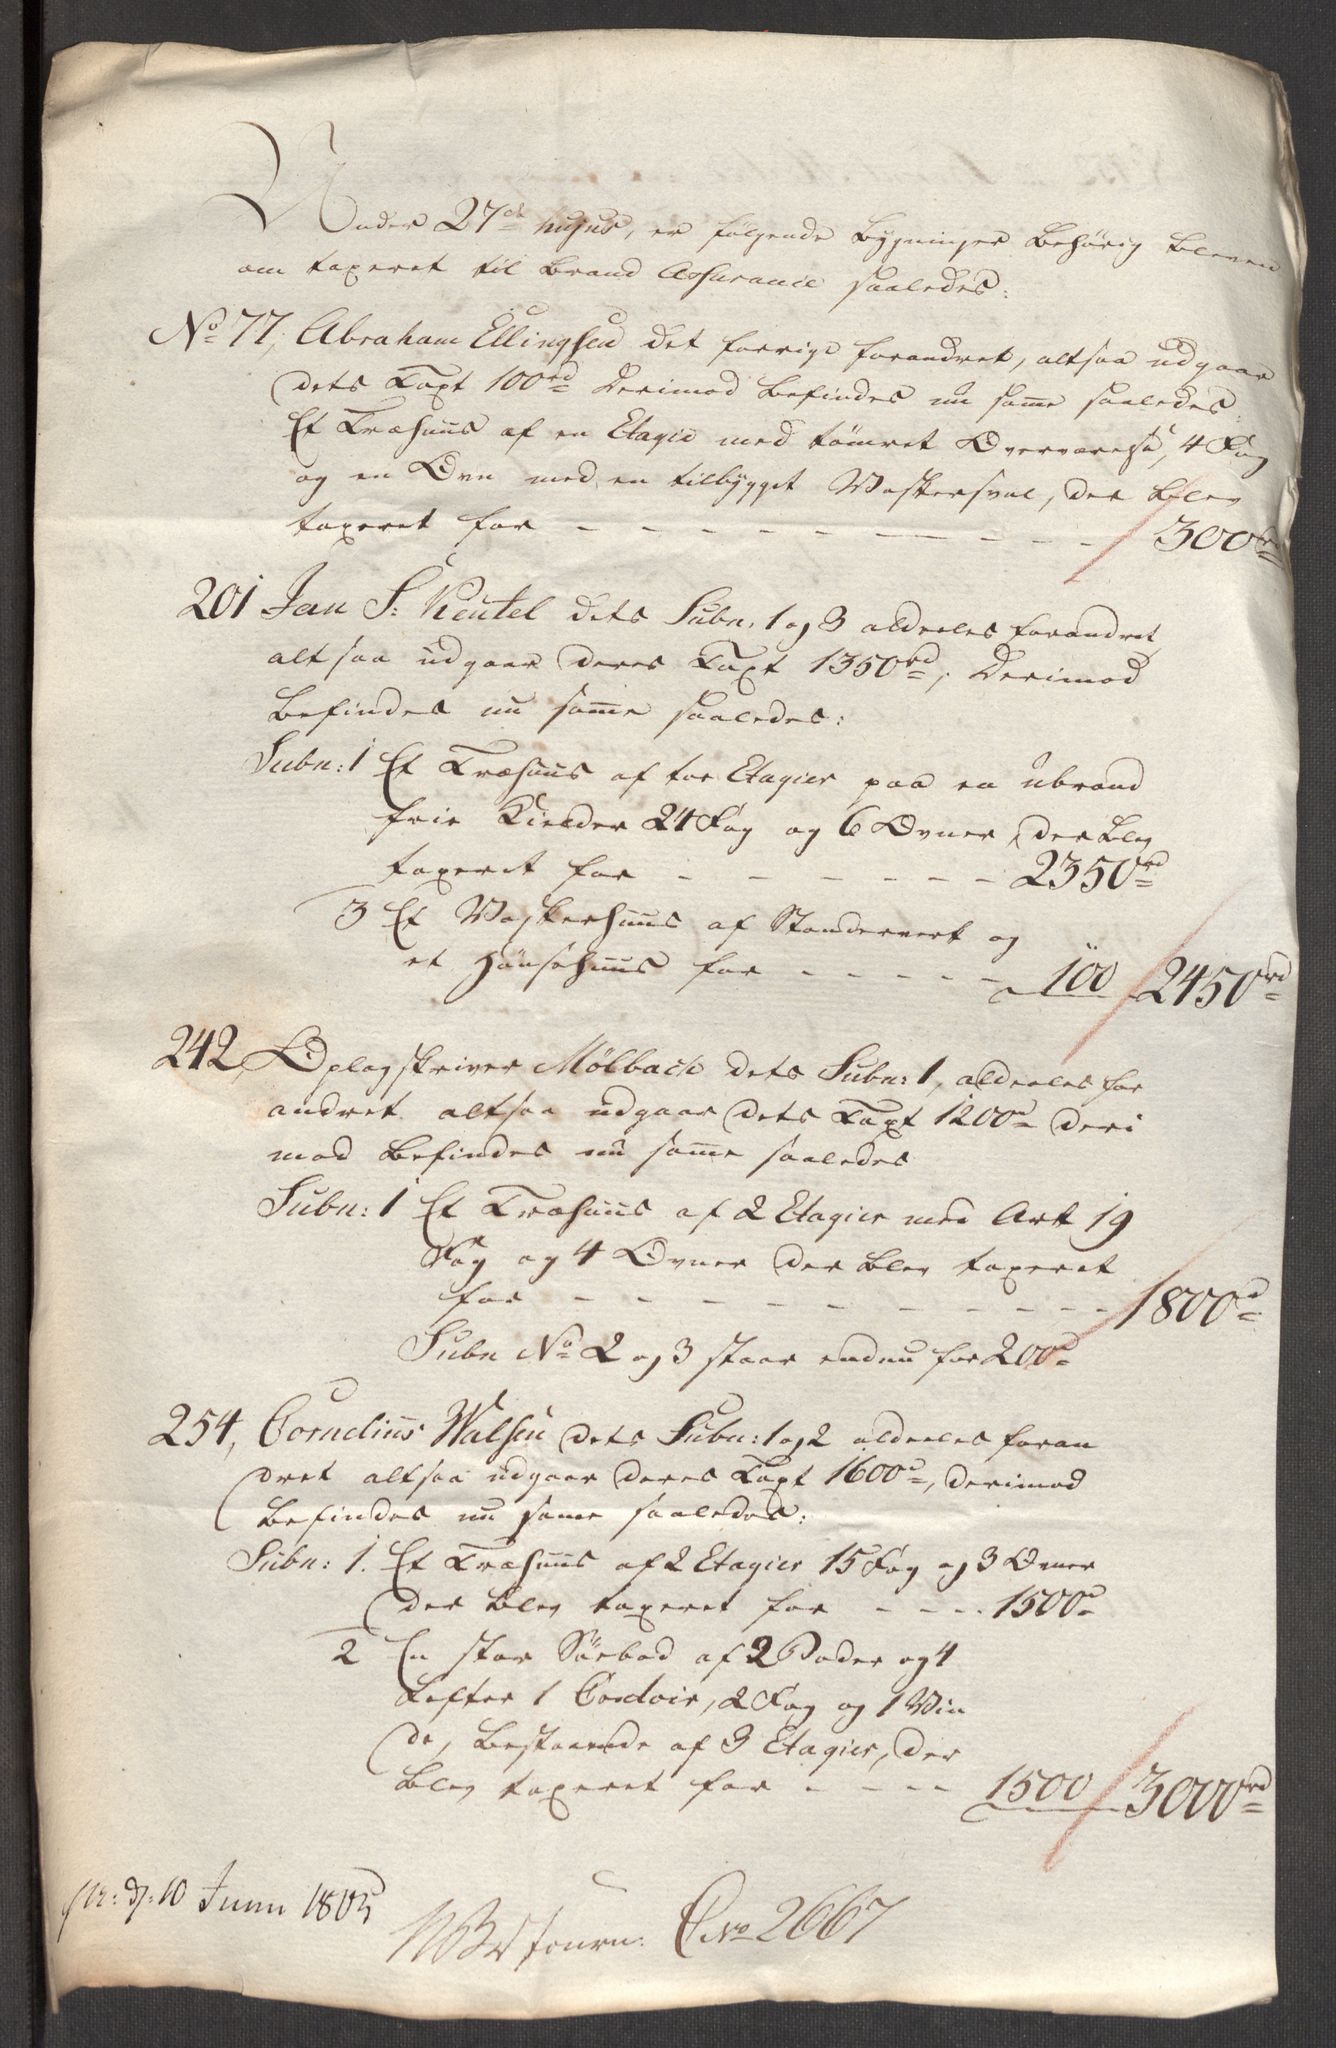 Under 27de hujus, er følgende Bygninger behørig bleven
om taxeret til Brand Assurance saaledes:
No 77, Abraham Ellingsen det forrige forandret, altsaa udgaar
dets Taxt 100rd Derimod befindes nu samme saaledes
Et Træhuus af en Etagie med tømret Overværelse, 4 Fag
og en Ovn med en tilbygget Waskersval, der blev
taxeret for - - - - - - - - - 300rd
201 Jan S: Keutel dets Subn: 1 og 3 aldeeles forandret
altsaa udgaar deres Taxt 1350rd, Derimod
befindes nu samme saaledes:
Subn: 1 Et Træhuus af toe Etagier paa en ubrand
frie Kielder 24 Fag og 6 Ovner, der blev
taxeret for - - - - - - - 2350rd
3 Et Waskerhuus af Standerverk og
et Hønsehuus for - - - - - 100 2450rd
242, Oplagskriver Mølbach dets Subn: 1, aldeeles for
andret altsaa udgaar dets Taxt 1200d deri
mod befindes nu samme saaledes
Subn: 1 Et Træhuus af 2 Etagier med Ark 19
Fag og 4 Ovner der blev taxeret
for - - - - - - - - - 1800d
Subn No 2 og 3 staar endnu for 200d
254, Cornelius Walsen dets Subn: 1 og 2 aldeeles foran
dret altsaa udgaar deres Taxt 1600d, derimod
befindes nu samme saaledes:
Subn: 1. Et Træhuus af 2 Etagier 15 Fag og 3 Ovner
der blev taxeret for - - - - 1500d
2 En stor Søebod af 2 Boder og 4
Lofter 1 Contoir, 2 Fag og 1 Vin
de, bestaaende af 3 Etagier, der
blev taxeret for - - - - 1500 3000rd
pr: d: 10 Juni 1805
Journ: No 2667